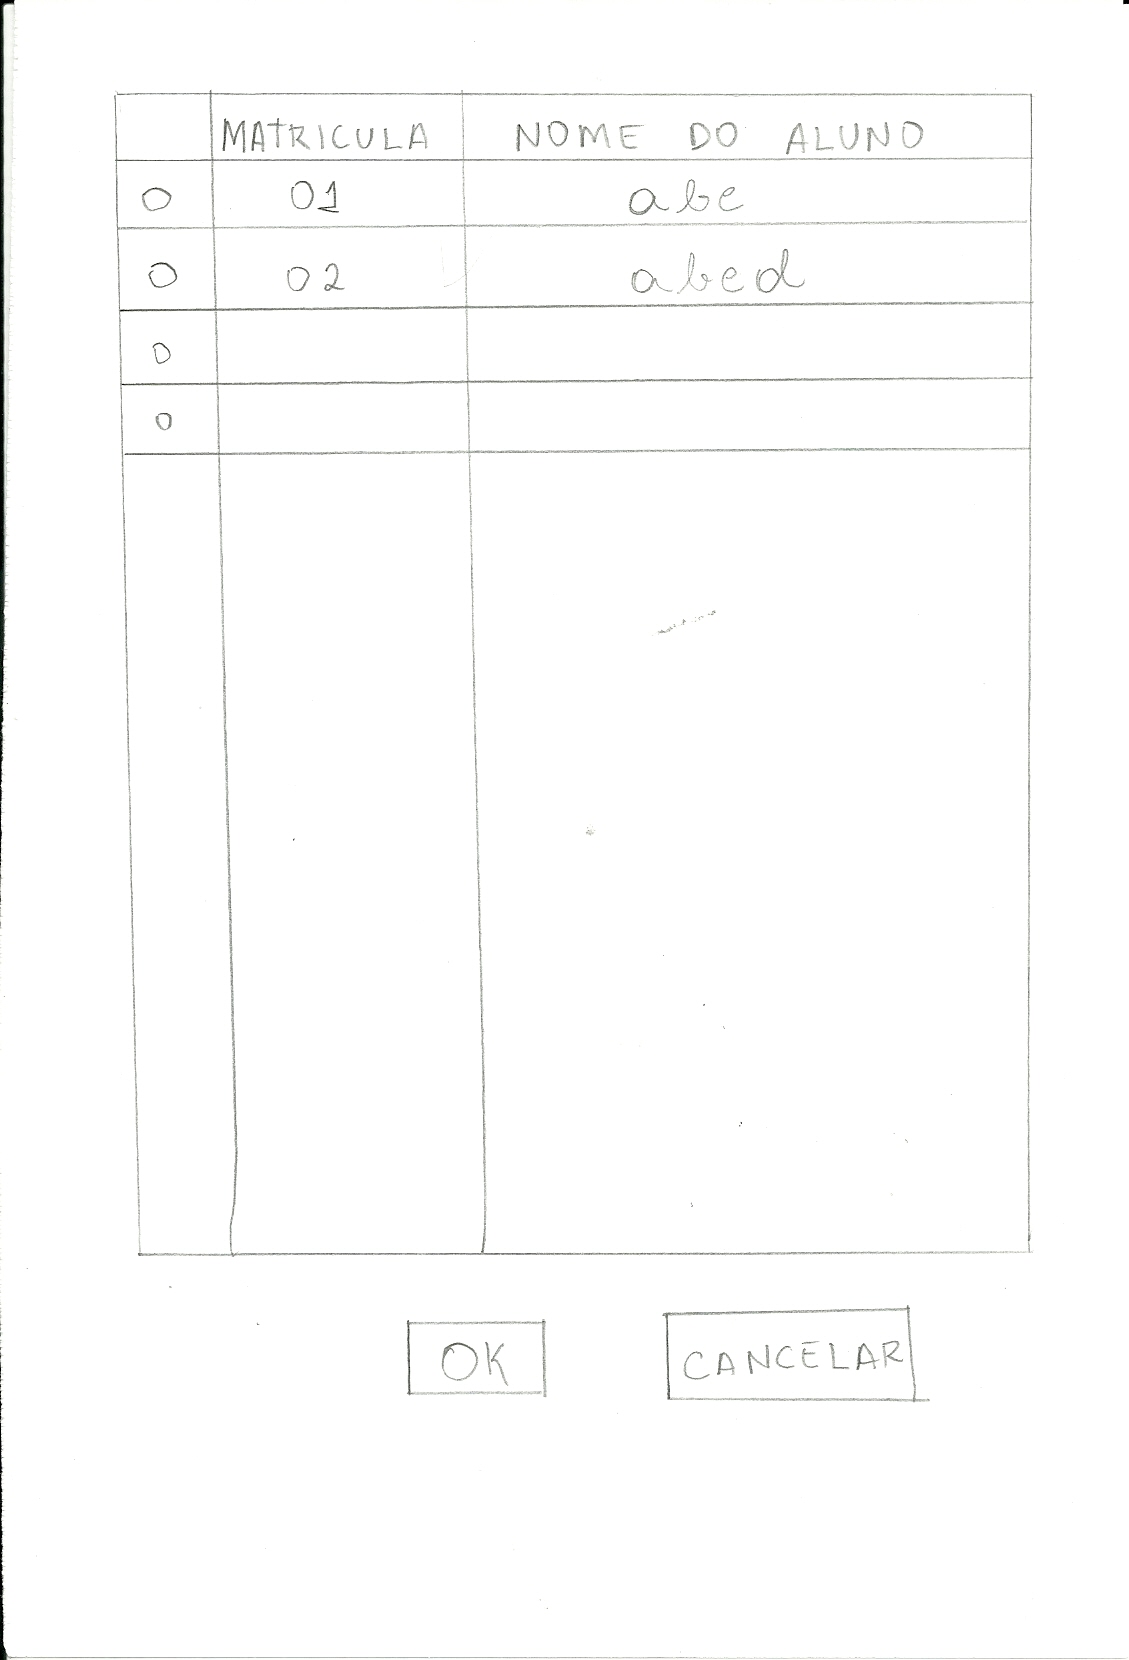 MATRICULA NOME DO ALUNO
01 abc
02 abcd
OK CANCELAR